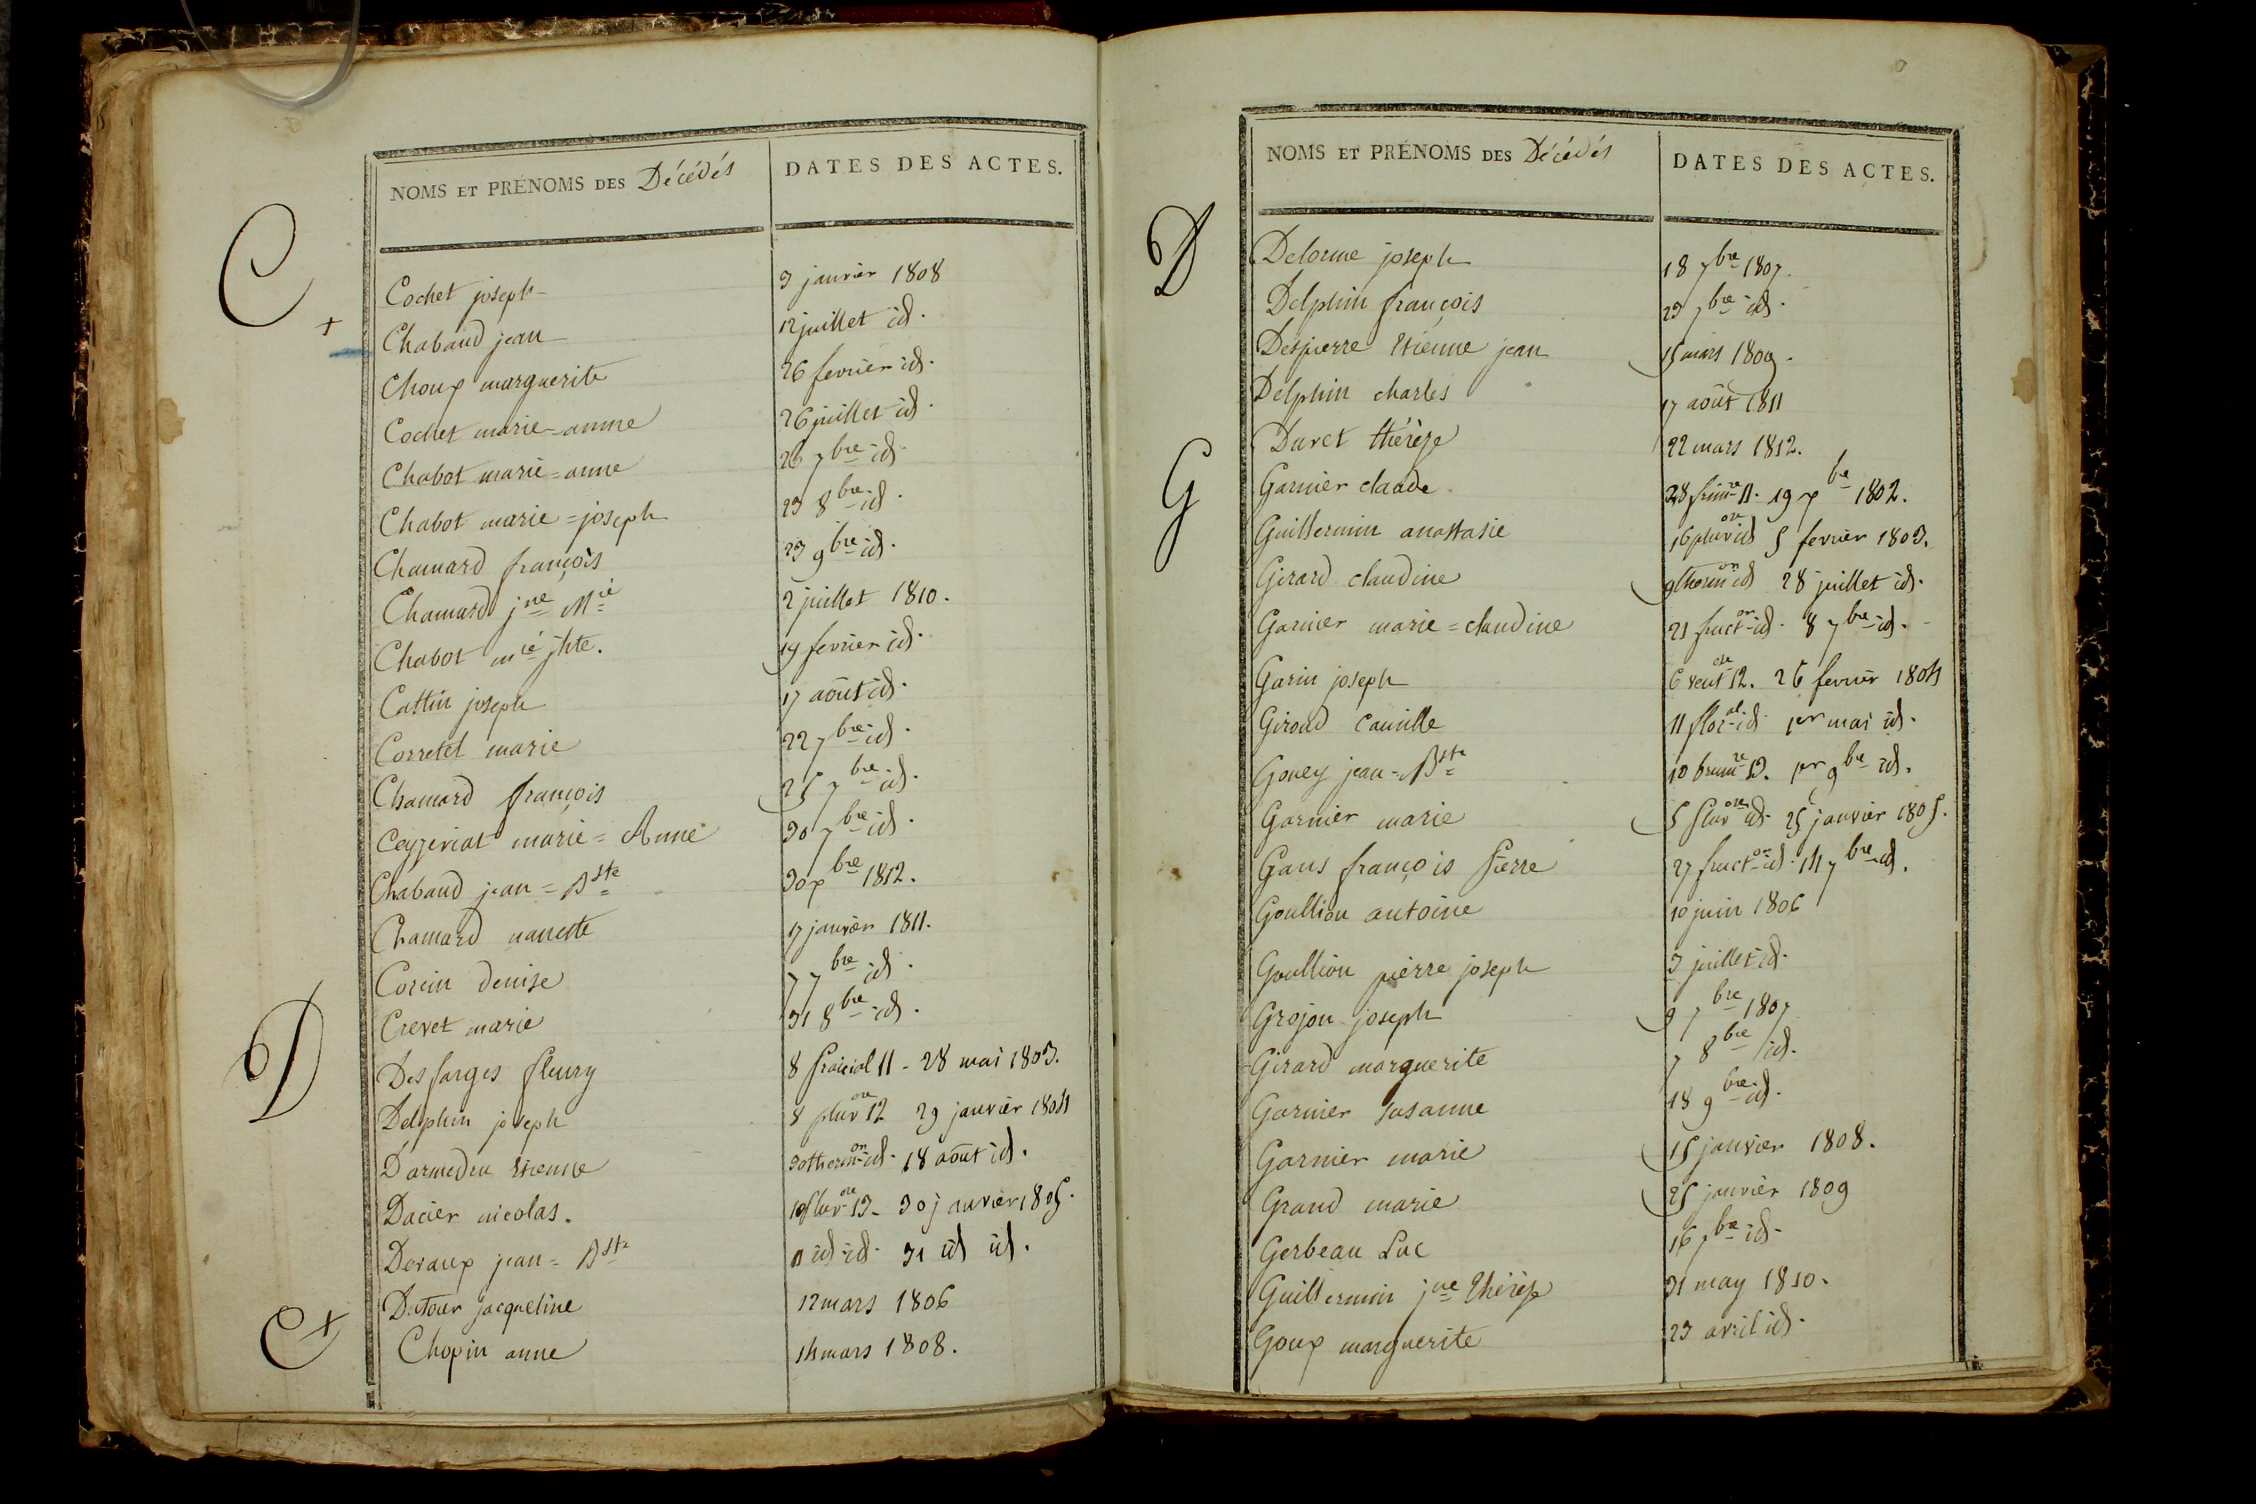 NOMS ET PRÉNOMS DES Décédés DATES DES ACTES.
C
Cochet joseph 3 janvier 1808
+
Chabaud jean 12 juillet id.
Choux marguerite 26 fevrier id.
Cochet marie-anne 26 juillet id.
Chabot marie=anne 26 7bre id.
Chabot marie=joseph 23 8bre id.
Chamard françois 23 9bre id.
Chamard jne Mie 2 juillet 1810.
Chabot mie jhte. 14 fevrier id.
Cattin joseph 17 août id.
Corretel marie 22 7bre id.
Chamard françois 25 7bre id.
Ceyzeriat marie=Anne 30 7bre id.
Chabaud jean=Bste 30 xbre 1812.
Chamard nanette 17 janvier 1811.
Corcin denise 7 7bre id.
Crevet marie 31 8bre id.
D
Desfarges fleury 8 Prairial 11 - 28 mai 1803.
Delphin joseph 8 pluvose 12 29 janvier 1804
Darmedin Etienne 30 thermon id. 18 août id.
Dacier nicolas. 10 Pluvose 13 - 30 janvier 1805.
Devaux jean=Bste 11 id id. 31 id id.
Dutour jacqueline 12 mars 1806
C +
Chopin anne 14 mars 1808.
NOMS ET PRÉNOMS DES Décédés DATES DES ACTES.
D
Delorme joseph 18 7bre 1807.
Delphin françois 23 7bre id.
Despierre Etienne jean 15 mars 1809.
Delphin charles 17 août 1811
Duret thérèze 22 mars 1812.
G
Garnier claude 28 frimre 11. 19 xbre 1802.
Guillermin anastasie 16 pluvose id 5 fevrier 1803.
Girard claudine 9 thermon id 28 juillet id.
Garnier marie=claudine 21 fructon id. 8 7bre id.
Garin joseph 6 ventose 12. 26 fevrier 1804
Giroud Camille 11 floral id. per mai id.
Gouey jean=Bste 10 brumre 13. per 9bre id.
Garnier marie 5 Pluvose id. 25 janvier 1805.
Gaus françois Pierre 27 fructor id. 14 7bre id.
Goullion antoine 10 juin 1806
Goullion pierre joseph 3 juillet id.
Grojon joseph 9 7bre 1807
Girard marguerite 7 8bre id.
Garnier susanne 18 9bre id.
Garnier marie 15 janvier 1808.
Grand marie 25 janvier 1809
Gerbeau Luc 16 7bre id.
Guillermin jne Thérèze 31 may 1810.
Goux marguerite 23 avril id.